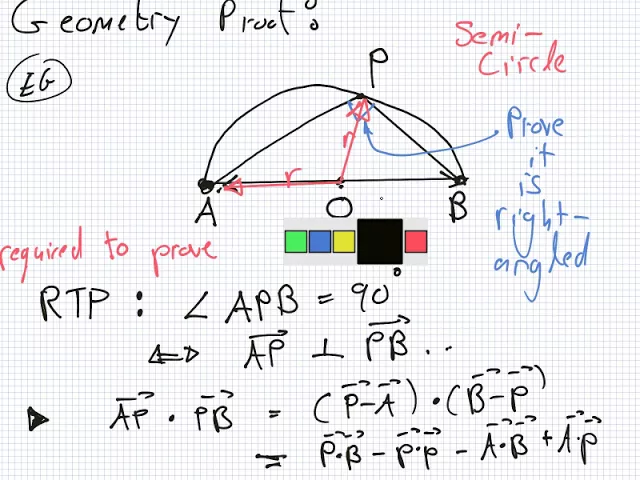 Geometry Proof:
EG
Semi-
Circle
P
r
r
A
O
B
Prove
it
is
right-
angled
required to prove
RTP : ∠ APB = 90
⇔ \overrightarrow{AP} ⊥ \overrightarrow{PB} ..
▶ \overrightarrow{AP} · \overrightarrow{PB} = (\vec{P} - \vec{A}) · (\vec{B} - \vec{P})
= \vec{P}·\vec{B} - \vec{P}·\vec{P} - \vec{A}·\vec{B} + \vec{A}·\vec{P}